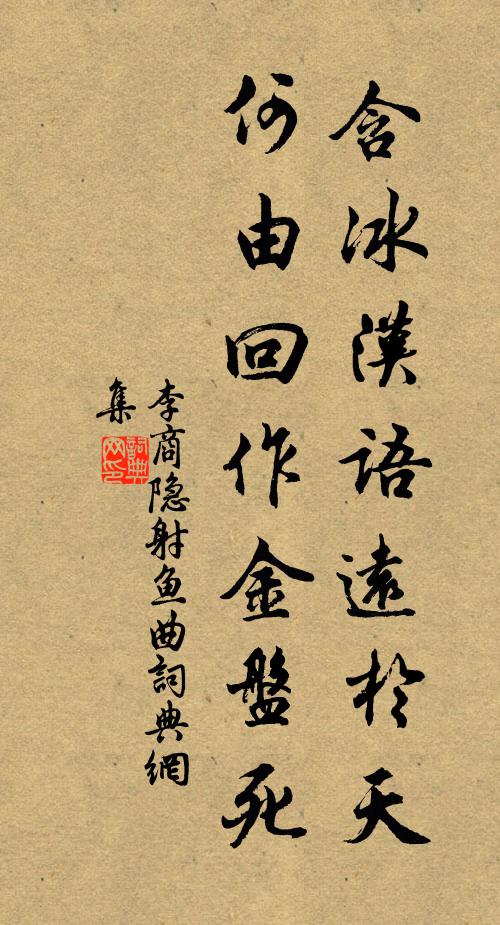 含冰漢語遠於天
何由回作金盤死
李商隐射鱼曲詞典網
集
詞典
网印